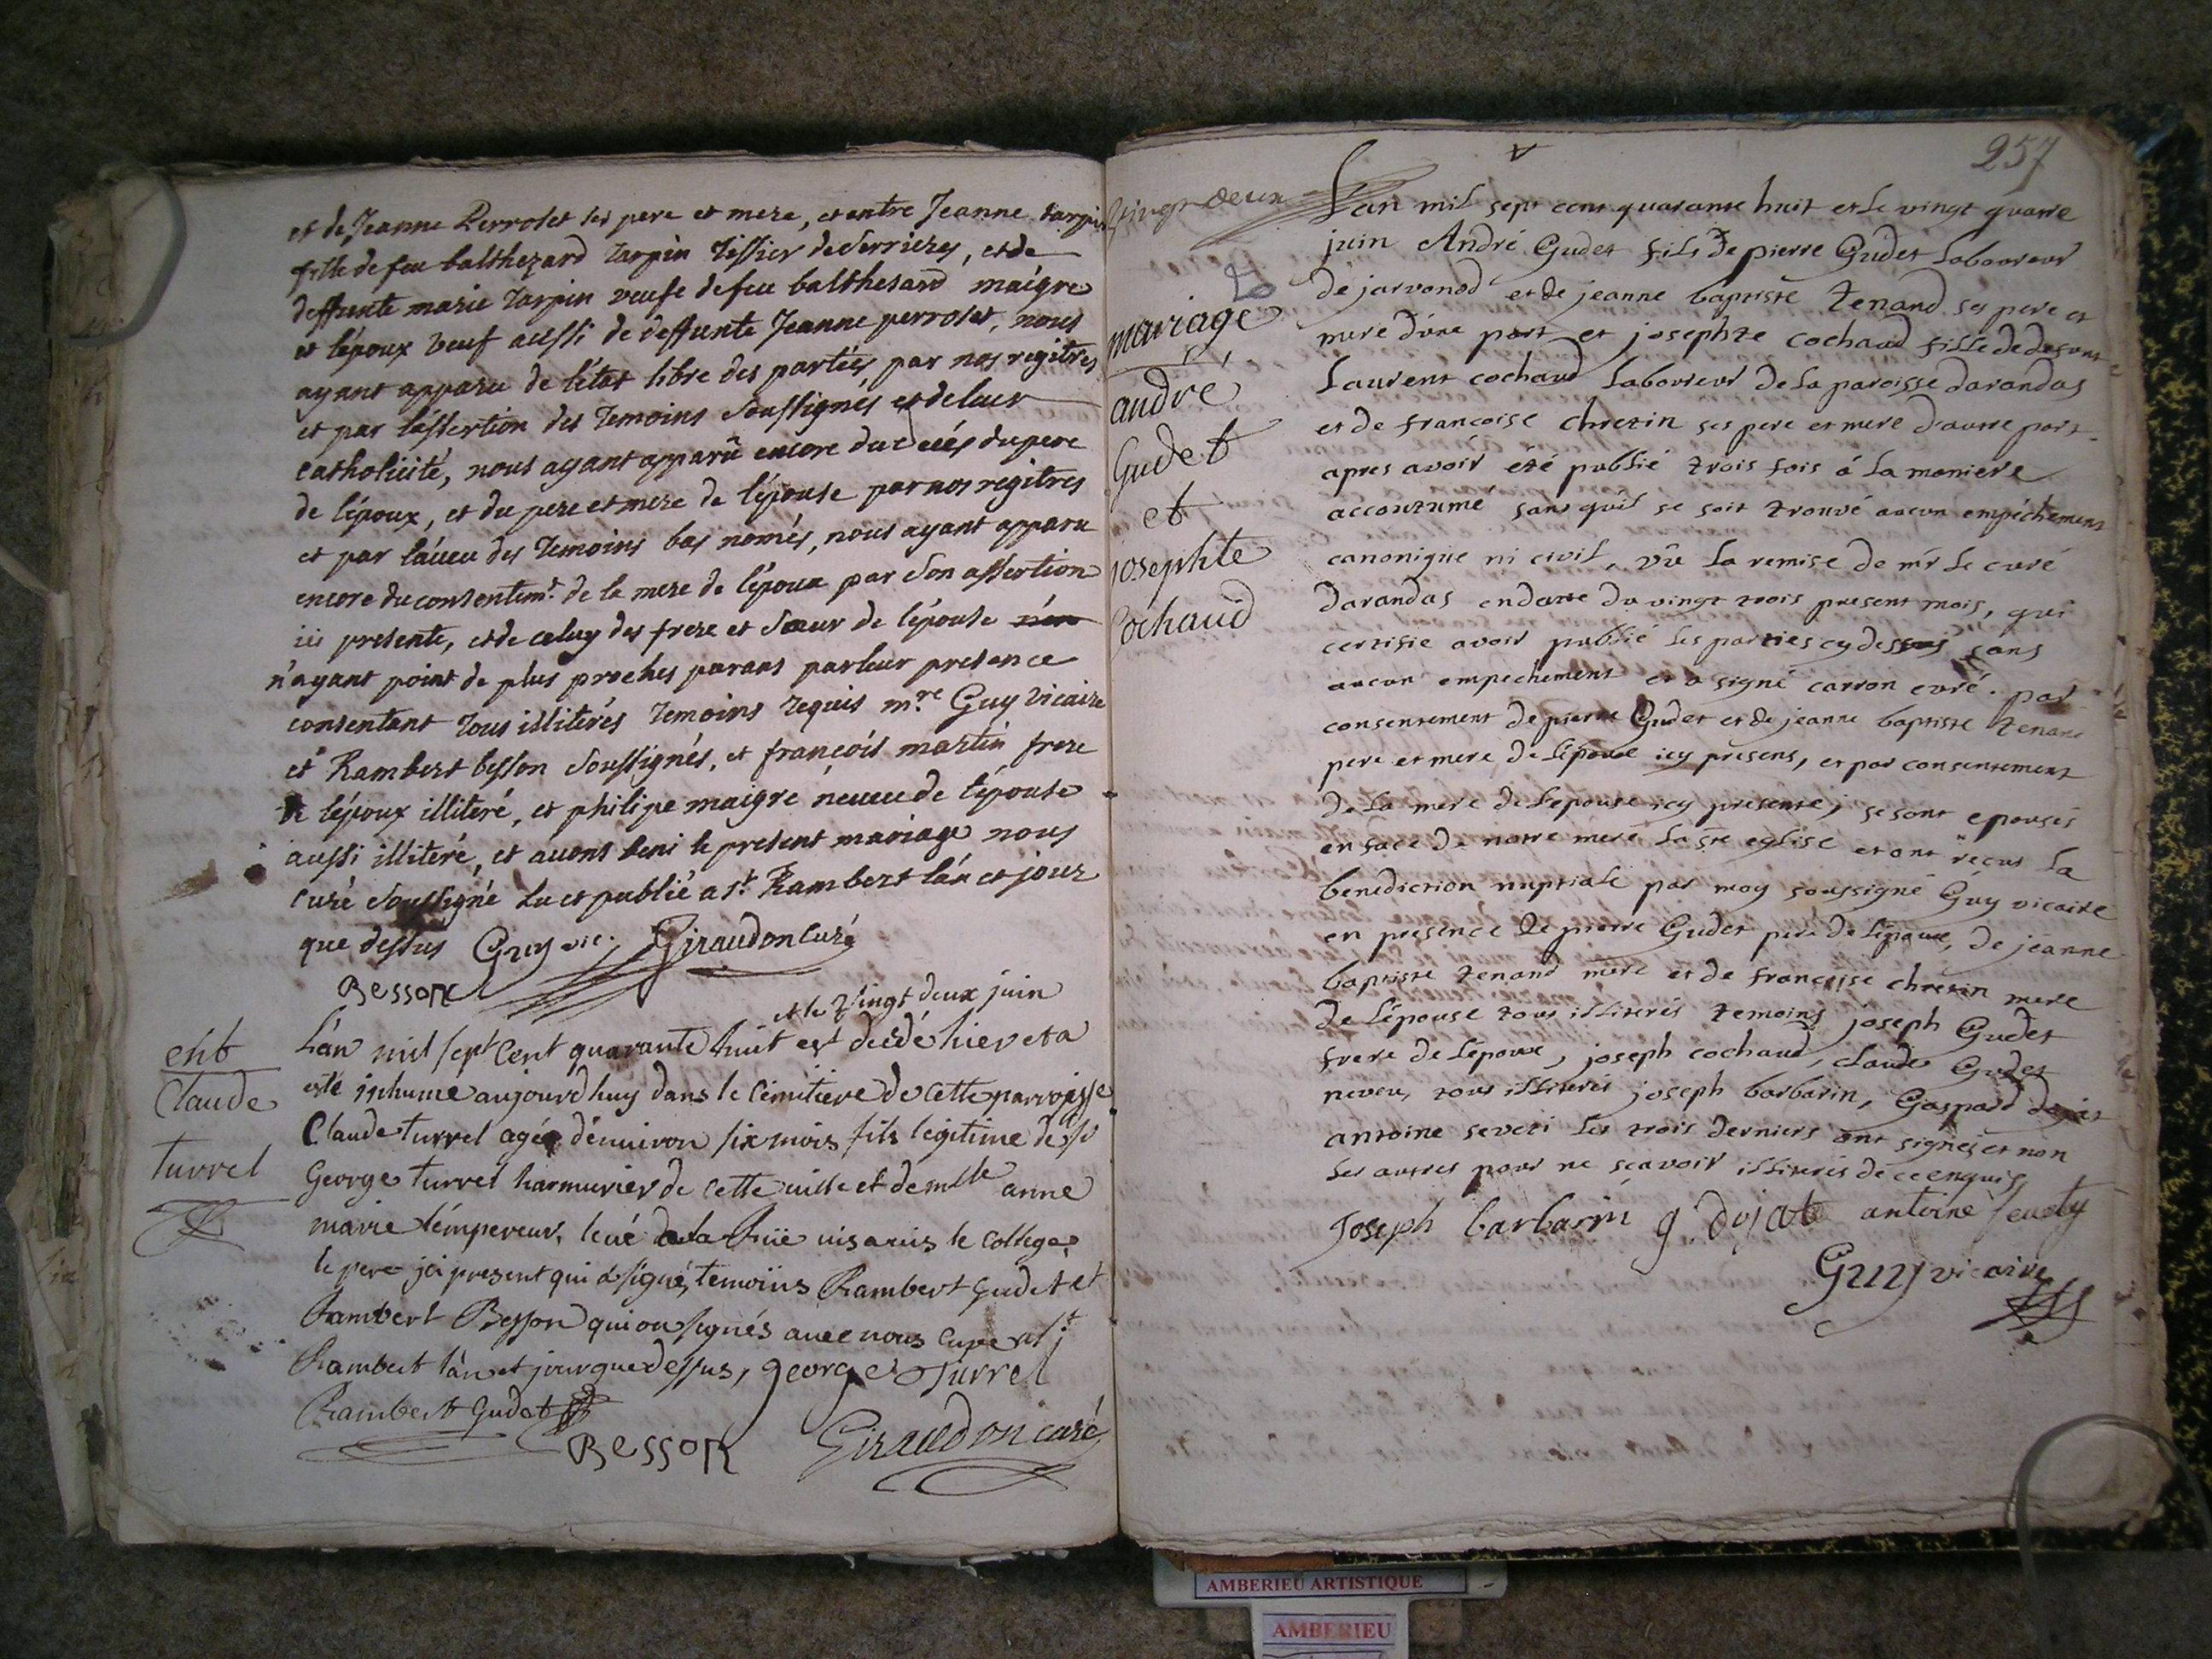 et de Jeanne Perroset ses pere et mere, et entre Jeanne tarpin
fille de feu balthezard tarpin tissier de serrieres, et de
deffunte marie tarpin veufe de feu balthesard maigre
et lépoux veuf aussi de deffunte Jeanne perroset, nous
ayant apparu de létat libre des parties par nos regitres
et par lassertion des temoins soussignés et de leur
catholicité, nous ayant apparû encore du decés du pere
de lépoux, et du pere et mere de lépouse par nos regitres
et par laueu des temoins bas només, nous ayant apparu
encore du consentimt. de la mere de lépoux par son assertion
ici presente, et de celuy des frere et sœur de lépouse
n'ayant point de plus proches parans par leur presence
consentant tous illiterés temoins requis mre. Guy vicaire
et Rambert besson soussignés, et françois martin frere
de lépoux illiteré, et philipe maigre neueu de lépouse
aussi illiteré, et auons beni le present mariage nous
curé soussigné Lu et publié a st. Rambert lán et jour
que dessus Guy vic. Giraudon Curé
Besson
et le vingt deux juin
ent
Lán mil sept Cent quarante huit est decedé hier et a
Claude
esté inhume aujourdhuy dans le Cimitiere de cette parroisse
Claude turrel agée dénuiron six mois fils légitime de sr
turrel
George turrel harmurier de cette uille et de mlle anne
marie lémpereur, leué de la Rüe uis auis le college,
le pere jci present qui a signé, temoins Rambert Gudet et
Rambert Besson qui on signés auec nous Curé a st
Rambert lán et jour que dessus, george Turrel
Rambert Gudet
Besson Giraudon curé
257
Lan mil sept cent quarante huit et le vingt quatre
juin André Gudet fils de pierre Gudet laboureur
de jarvonod et de jeanne baptiste tenand ses pere et
mere d'une part et josephte cochaud fille de defunt
Laurent cochaud laboureur de la paroisse darandas
et de françoise chretin ses pere et mere d'autre part
apres avoir été publié trois fois á la maniere
accoutumé sans qu'il se soit trouvé aucun empéchement
canonique ni civil, vû la remise de mr le curé
darandas en datte du vingt trois present mois, qui
certifie avoir publié les parties cy dessus sans
aucun empechement et a signé carron curé. par
consentement de pierre Gudet et de jeanne baptiste tenand
pere et mere de l'époux icy presens, et par consentement
de la mere de l'epouse icy presente, se sont epousés
en face de notre mere la ste eglise et ont reçus la
benediction nuptiale par moy soussigné Guy vicaire
en presence de pierre Gudet pere de l'époux, de jeanne
baptiste tenand mere et de françoise chretin mere
de l'épouse tous illiterés temoins joseph Gudet
frere de l'époux, joseph cochaud, claude Gudet
neveu, tous illiterés joseph barbarin, Gaspard dojat
antoine seveti les trois derniers ont signés et non
les autres pour ne sçavoir illiterés de ce enquis
mariage
andré
Gudet
et
josephte
Cochaud
Joseph barbarin g dojat antoine
Guy vicaire
AMBERIEU ARTISTIQUE
AMBERIEU